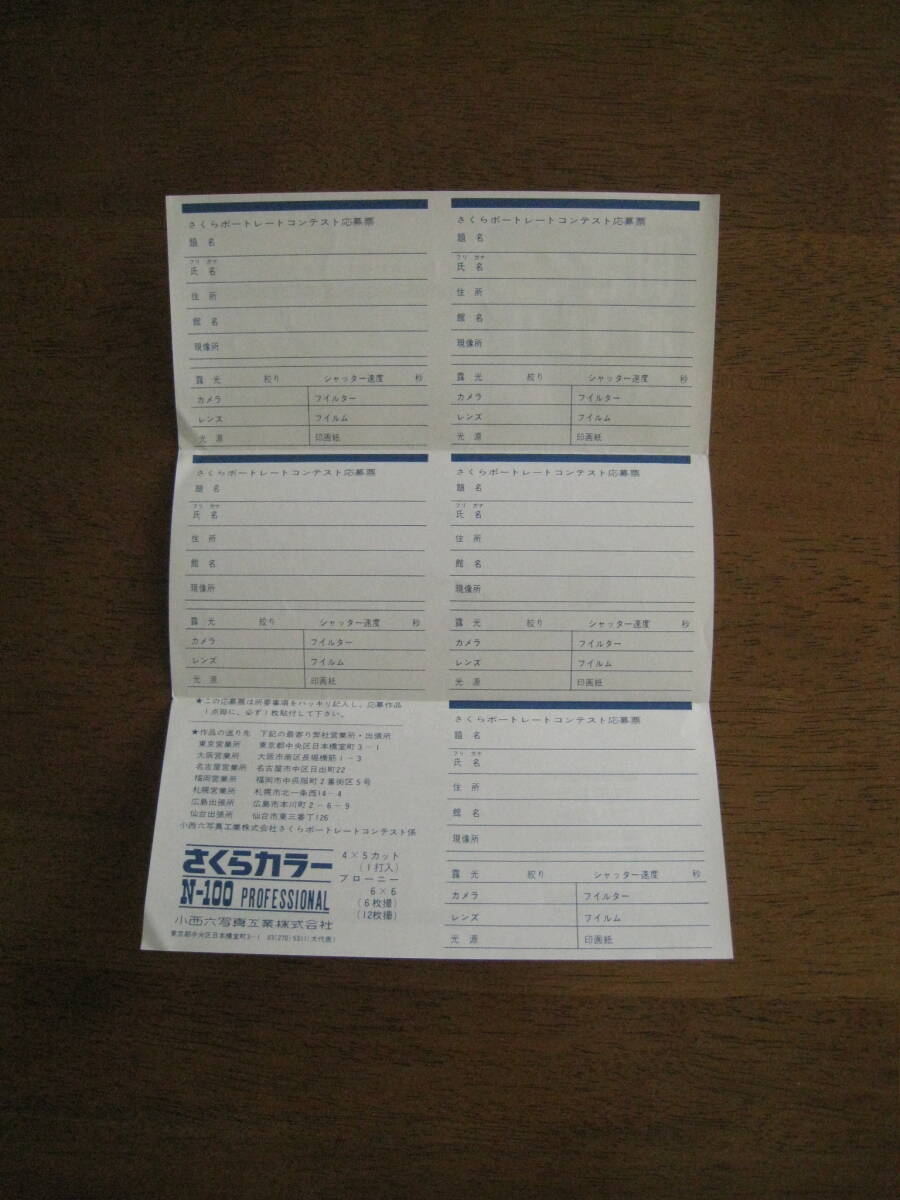 さくらポートレートコンテスト応募票
題 名
フリ ガナ
氏 名
住 所
館 名
現像所
露 光 絞り シャッター速度 秒
カメラ フイルター
レンズ フイルム
光 源 印画紙
さくらポートレートコンテスト応募票
題 名
フリ ガナ
氏 名
住 所
館 名
現像所
露 光 絞り シャッター速度 秒
カメラ フイルター
レンズ フイルム
光 源 印画紙
さくらポートレートコンテスト応募票
題 名
フリ ガナ
氏 名
住 所
館 名
現像所
露 光 絞り シャッター速度 秒
カメラ フイルター
レンズ フイルム
光 源 印画紙
さくらポートレートコンテスト応募票
題 名
フリ ガナ
氏 名
住 所
館 名
現像所
露 光 絞り シャッター速度 秒
カメラ フイルター
レンズ フイルム
光 源 印画紙
★この応募票は所要事項をハッキリ記入し、応募作品
1点毎に、必ず1枚貼付して下さい。
★作品の送り先 下記の最寄り弊社営業所・出張所
東京営業所 東京都中央区日本橋室町3-1
大阪営業所 大阪市南区長堀橋筋1-3
名古屋営業所 名古屋市中区日出町22
福岡営業所 福岡市中呉服町2番街区5号
札幌営業所 札幌市北一条西14-4
広島出張所 広島市本川町2-6-9
仙台出張所 仙台市東三番丁126
小西六写真工業株式会社さくらポートレートコンテスト係
さくらカラー
N-100 PROFESSIONAL
4×5カット
(1打入)
ブローニー
6×6
(6枚撮)
(12枚撮)
小西六写真工業株式会社
東京都中央区日本橋室町3-1 03(270)5311(大代表)
さくらポートレートコンテスト応募票
題 名
フリ ガナ
氏 名
住 所
館 名
現像所
露 光 絞り シャッター速度 秒
カメラ フイルター
レンズ フイルム
光 源 印画紙